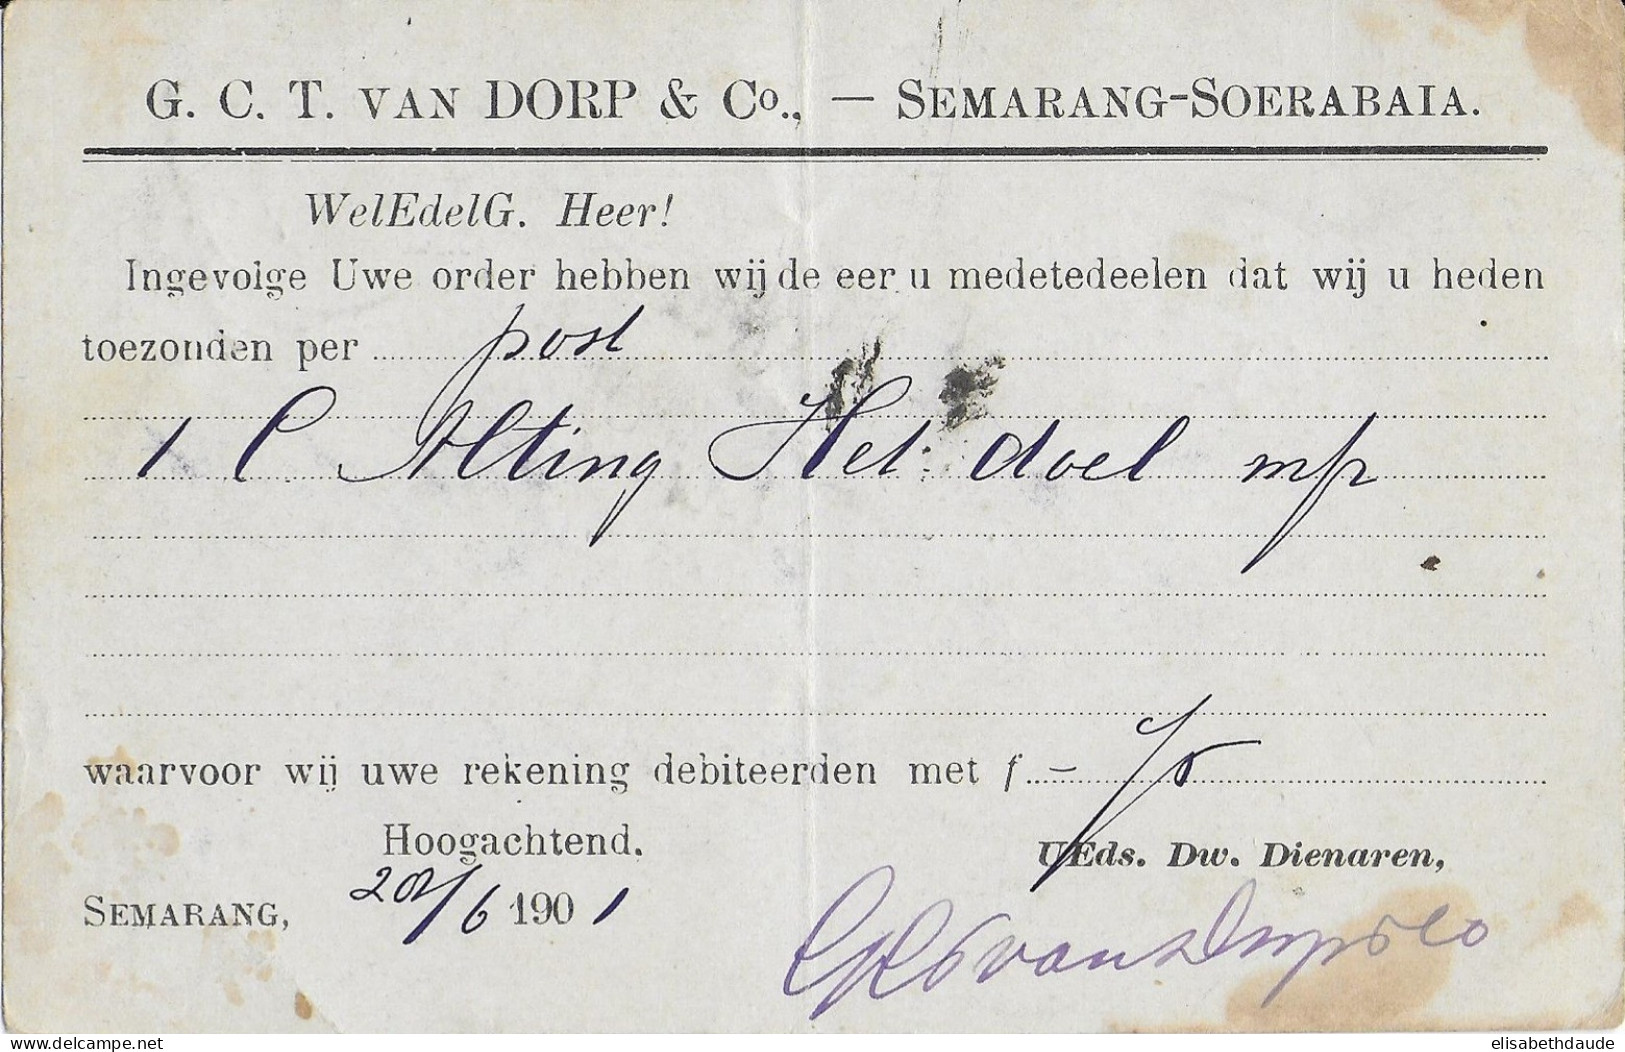 G. C. T. VAN DORP & Co., — SEMARANG-SOERABAIA.
WelEdelG. Heer!
Ingevolge Uwe order hebben wij de eer u medetedeelen dat wij u heden
toezonden per post
1 C Alting Het doel
waarvoor wij uwe rekening debiteerden met f –
Hoogachtend.
UEds. Dw. Dienaren,
SEMARANG, /6 1901
van Dorp & Co
delcampe.net
elisabethdaude